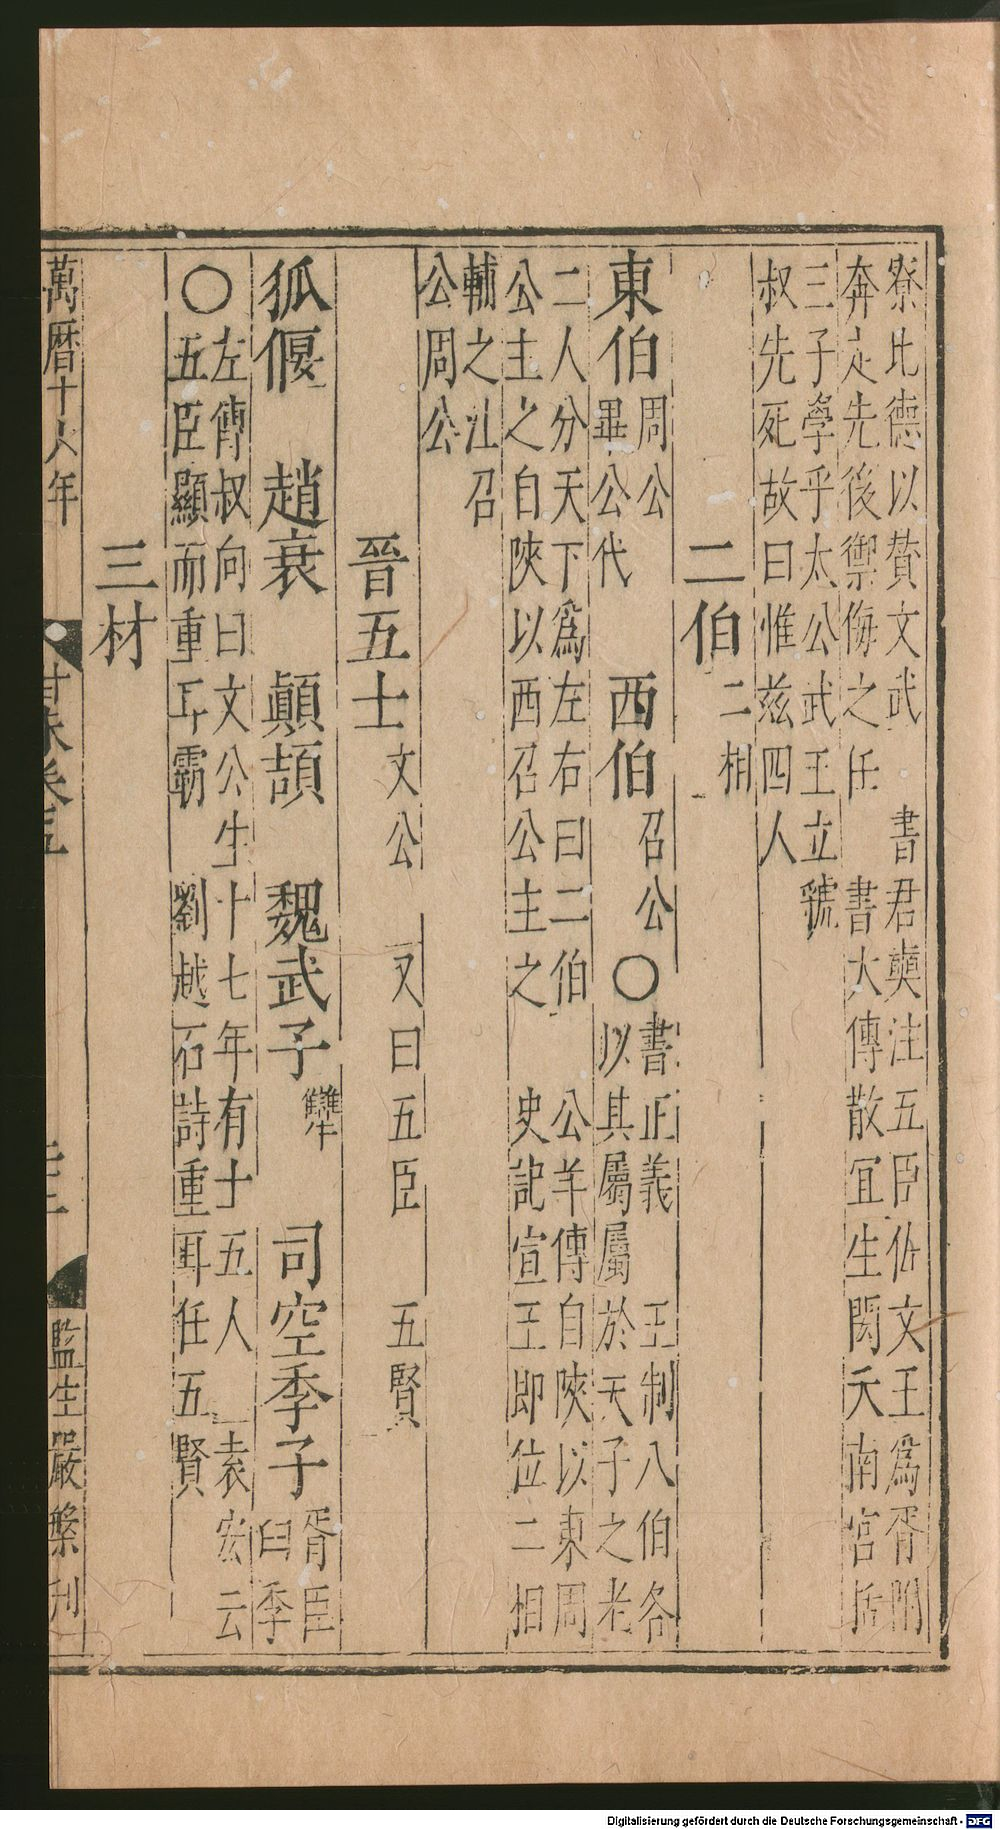 寮比德以贊文武　書君奭注五臣佐文王爲胥附
奔走先後禦侮之任　書大傳散宜生閎夭南宫括
三子學乎太公武王立虢
叔先死故曰惟玆四人
二伯二相
東伯
周公
畢公代
西伯
召公
〇
書正義　王制八伯各
以其屬屬於天子之老
二人分天下爲左右曰二伯　公羊傳自陝以東周
公主之自陝以西召公主之　史記宣王即位二相
輔之注召
公周公
晉五士文公　又曰五臣　五賢
狐偃　趙衰　顛頡　魏武子
犨
司空季子
胥臣
臼季
〇
左傳叔向曰文公生十七年有士五人　袁宏云
五臣顯而重耳霸　劉越石詩重耳任五賢
三材
萬曆十六年
監生嚴槃刊
Digitalisierung gefördert durch die Deutsche Forschungsgemeinschaft - DFG